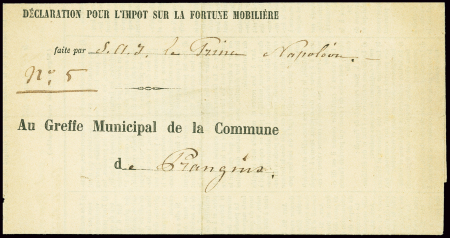 DÉCLARATION POUR L'IMPOT SUR LA FORTUNE MOBILIÈRE
faite par S. A. I. le Prince Napoléon.
No 5
Au Greffe Municipal de la Commune
de Prangins.